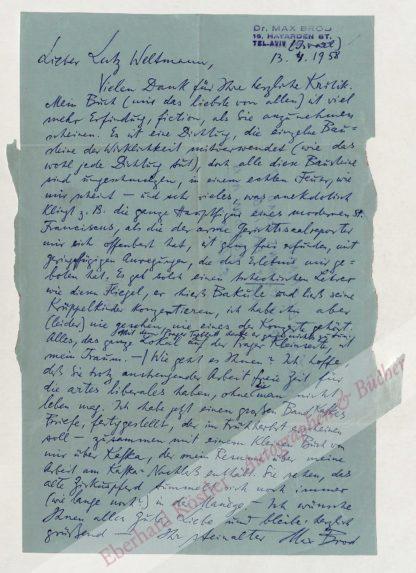 Dr. MAX BROD
16, HAYARDEN ST.
TEL-AVIV (Israel)
13. 4. 1958
Lieber Lutz Weltmann,
Vielen Dank für Ihre herzliche Kritik.
Mein Buch (mir das liebste von allen) ist viel
mehr Erfindung, fiction, als Sie anzunehmen
scheinen. Es ist eine Dichtung, die einzelne Bau-
steine der Wirklichkeit mitverwendet (wie das
wohl jede Dichtung tut), doch alle diese Bausteine
sind umgeschmolzen, in einem echten Feuer, wie
mir scheint – und sehr vieles, was anekdotisch
klingt z. B. die ganze Hauptfigur eines modernen St.
Franciscus, als die der arme Gerichtssaalreporter
mir sich offenbart hat, ist ganz frei erfunden, mit
geringfügigen Anregungen, die das Erlebnis mir ge-
boten hat. Es gab solch einen tschechischen Lehrer
wie diesen Fliegel, er hieß Bakule und ließ seine
Krüppelkinder konzertieren, ich habe ihn aber
(leider) nie gesehen, nie eines der Konzerte gehört.
Alles, das ganze Lokal auf der Prager Kleinseite ist
mein Traum. – Wie geht es Ihnen? Ich hoffe
daß Sie trotz anstrengender Arbeit freie Zeit für
die artes liberales haben, ohne man nicht
leben mag. Ich habe jetzt einen großen Band Kafka-
Briefe, fertiggestellt, der im Frühherbst erscheinen
soll – zusammen mit einem kleinen Buch von
mir über Kafka, der mein Resumé über meine
Arbeit am Kafka-Nachlaß enthält. Sie sehen, das
alte Zirkuspferd tummelt sich noch immer
(wie lange noch?) in der Manège. – Ich wünsche
Ihnen alles Gute, Liebe und bleibe, herzlich
grüßend – Ihr steinalter Max Brod
Eberhard Köstler Autographen & Bücher